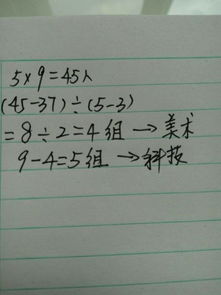 5×9=45人
(45-37)÷(5-3)
=8÷2=4组→美术
9-4=5组→科技